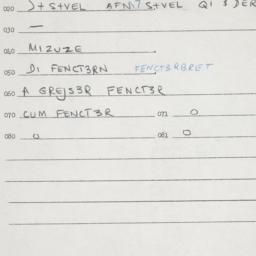 020 S+ S+VEL AFN17 S+VEL QI 3 DER
030 —
040 MIZUZE
050 DI FENCT3RN FENCT3RBRET
060 A GREJS3R FENCT3R
070 CUM FENCT3R 071 0
080 0 081 0